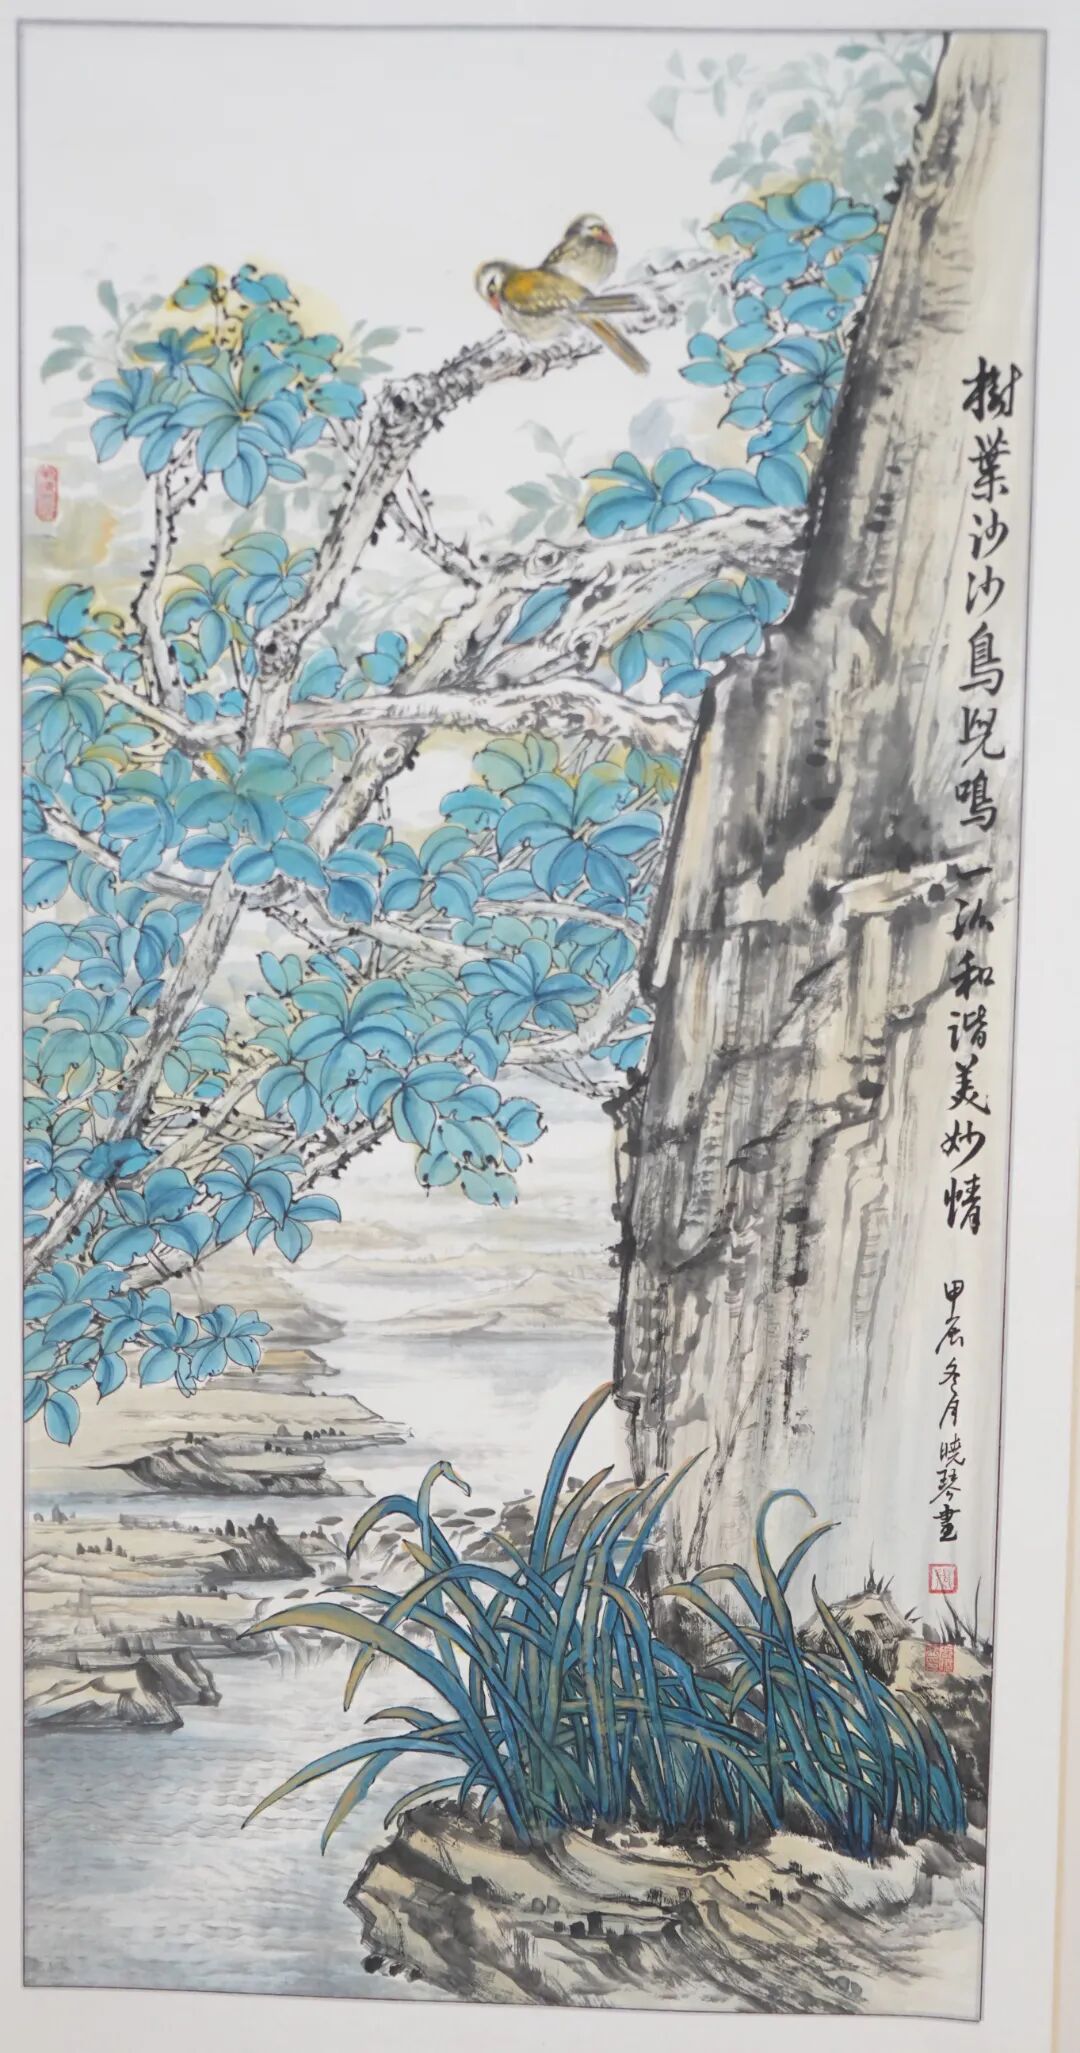 樹葉沙沙鳥兒鳴一派和谐美妙情
甲辰冬月曉琴畫